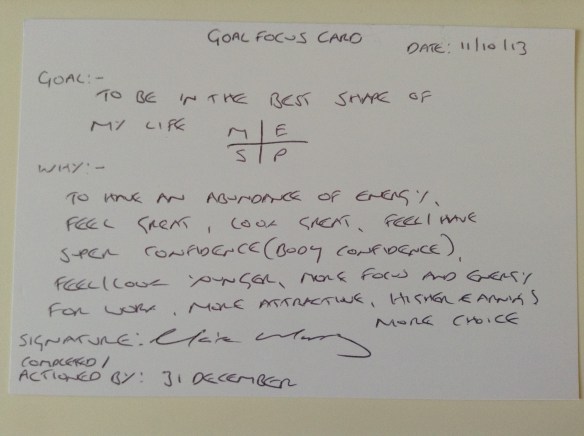 GOAL FOCUS CARD
DATE: 11/10/13
GOAL:-
TO BE IN THE BEST SHAPE OF
MY LIFE
M E
S P
WHY:-
TO HAVE AN ABUNDANCE OF ENERGY,
FEEL GREAT, LOOK GREAT, FEEL/HAVE
SUPER CONFIDENCE (BODY CONFIDENCE),
FEEL/LOOK YOUNGER, MORE FOCUS AND ENERGY
FOR WORK, MORE ATTRACTIVE, HIGHER EARNINGS
MORE CHOICE
SIGNATURE:
COMPLETED/
ACTIONED BY: 31 DECEMBER